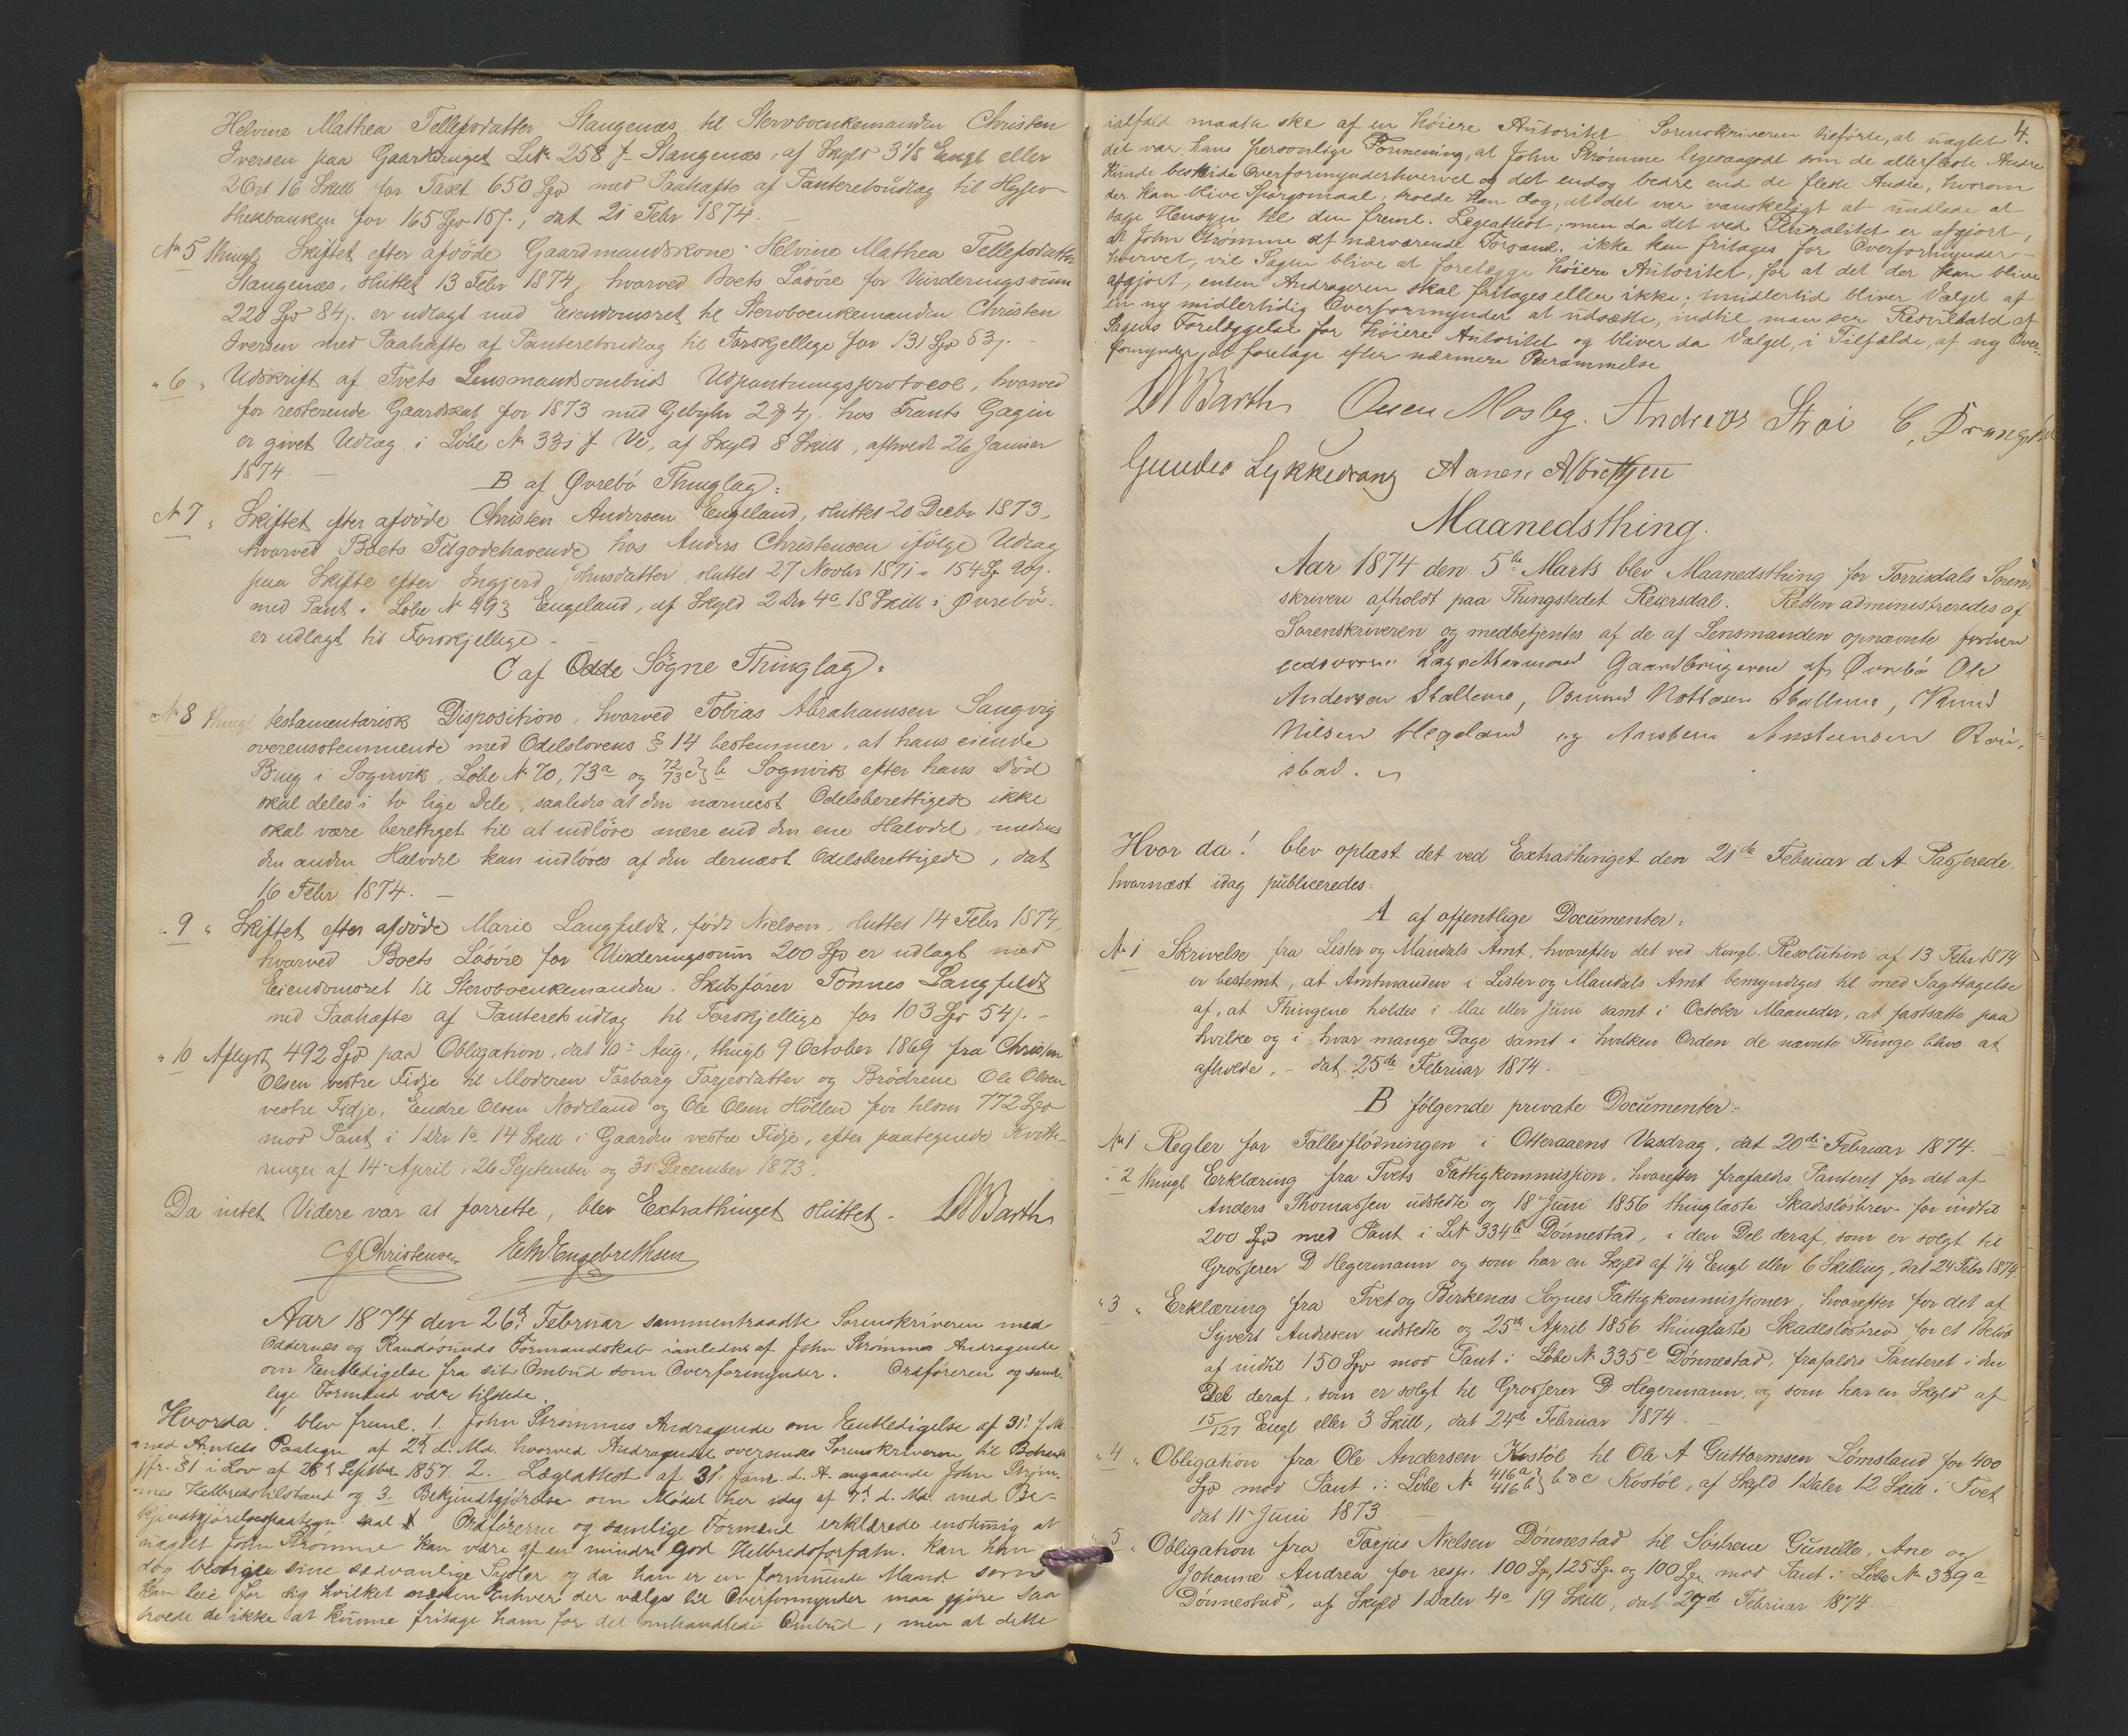 Helvine Mathea Tellefsdatter Stangenæs, til Stervboenkemanden Christen
Iversen paa Gaardbruget LNr 258 f Stangenæs, af Skyld 3 1/8 Engl eller
2 Ort 16 Skill for Taxt 650 Spd med Paahæfte af Panteretsudlag til Hypo-
thekbanken for 165 Spd 10 s., dat 21 Febr 1874. —
No 5 thingl Skiftet efter afdøde Gaardmandskone Helvine Mathea Tellefsdatter
Stangenæs, sluttet 13 Febr 1874, hvorved Boets Løsøre for Vurderingssum
220 Spd 84 s. er udlagt med Eiendomsret til Stervboenkemanden Christen
Iversen med Paahæfte af Panteretsudlag til Forskjellige for 131 Spd 83 s. —
" 6 " Udskrift af Tvets Lensmandsombuds Udpantningsprotocol, hvorved
for resterende Gaardskat for 1873 med Gebyhr 2 # 4 s. hos Frants Gagin
er givet Udlæg i Løbe No 331 f Ve, af Skyld 8 Skill, afhredt 26 Januar
1874. —
B af Øvrebö Thinglag:
No 7 " Skiftet efter afdöde Christen Andersen Engeland, sluttet 20 Decbr 1873,
hvorved Boets Tilgodehavende hos Anders Christensen ifölge Udlæg
paa Skifte efter Ingjerd Knusdatter, sluttet 27 Novbr 1871 - 154 Sp 90 s.
med Pant i Løbe No 493 Engeland, af Skyld 2 Dlr 4 o 18 Skill i Øvrebö.
er udlagt til Forskjellige. —
C af Odde Sögne Thinglag:
No 8 thingl testamentarisk Disposition, hvorved Tobias Abrahamsen Sangvig
overensstemmende med Odelslovens § 14 bestemmer, at hans eiende
Brug i Sognvik, Løbe No 70, 73 a og 72/73 c } b Sognvik efter hans Död
skal deles i to lige Dele, saaledes at den nærmest Odelsberettigede ikke
skal være berettiget til at indlöse mere end den ene Halvdel, medens
den anden Halvdel kan indlöses af den dernæst Odelsberettigede, dat
16 Febr 1874. —
" 9 " Skiftet efter afdöde Marie Langfeldt, född Nielsen, sluttet 14 Febr 1874,
hvorved Boets Lösöre for Vurderingssum 200 Spd er udlagt med
Eiendomsret til Stervboenkemanden. Skibsförer Tönnes Langfeldt
med Paahæfte af Panteretsudlag til Forskjellige for 103 Spd 54 s. —
" 10 Aflyst 492 Spd paa Obligation, dat 10 Aug., thingl 9 October 1869 fra Christen
Olsen vestre Fidje til Moderen Tarborg Tarjesdatter og Brödrene Ole Olsen
vestre Fidje, Endre Olsen Nodeland og Ole Olsen Höllen for tilsm 772 Spd
mod Pant i 1 Dlr 1 o 14 Skill i Gaarden vestre Fidje, efter paategnede Kvitte-
ringer af 14 April, 26 September og 31 December 1873.
Da intet Videre var at forrette, blev Extrathinget sluttet. Barth
Christensen Engebrethsen
Aar 1874 den 26d Februar sammentraadte Sorenskriveren med
Oddernes og Randösunds Formandskab i anledn af John Strømmes Andragende
om Entledigelse fra sit Ombud som Overformynder. Ordføreren og samt-
lige Formænd være tilstede.
Hvorda! blev freml. 1. John Strømmes Andragende om Entledigelse af 31 f. M.
med Amtets Paategn af 2d d. Md. hvorved Andragendet oversendes Sorenskriveren til
jfr. § 1 i Lov af 28d Septbr 1857. 2. Lægeattest af 31 Janr. d. A. angaaende John Strøm-
mes Helbredstilstand og 3. Bekjendtgjörelse om Mødet her idag af 7d d. Md. med Be-
kjendtgjörelsespaategn. Ordførerne og samtlige Formænd erklærede enstemig at
uagtet John Strømme kan være af en mindre god Helbredsforfatn. kan han
dog besörge sine sædvanlige Sysler og da han er en formuende Mand som
kan leie for sig hvilket næsten Enhver der vælges til Overformynder maa gjöre saa
troede de ikke at kunne fritage ham for det omhandlede Ombud, men at dette
4.
ialfald maatte ske af en höiere Autoritet. Sorenskriveren tilförte, at uagtet
det var hans personlige Formening, at John Strømme ligesaagodt som de allerfleste Andre
kunde bestride Overformynderhvervet og det endog bedre end de fleste Andre, hvorom
der kan blive Spörgsmaal, troede han dog, at det var vanskeligt at undlade at
tage Hensyn til den freml. Legeattest; men da det ved Pluralitet er afgjort,
at John Strømme af nærværende Forsaml. ikke kan fritages for Overformynder-
hvervet, vil Sagen blive at forelægge höiere Autoritet, for at det der kan blive
afgjort, enten Andrageren skal fritages eller ikke; imidlertid bliver Valget af
en ny midlertidig Overformynder at udsætte, indtil man ser Resultatet af
Sagens Forelæggelse for höiere Autoritet og bliver da Valget, i Tilfælde, af ny Over-
formynder at foretage efter nærmere Berammelse
Barth Ouen Mosby. Andreas Stræi C, Drangsh
Gunder Lykkedrang Aanen Albrethsen
Maanedsthing.
Aar 1874 den 5te Marts blev Maanedsthing for Torrisdals Soren-
skriveri afholdt paa Thingstedet Reiersdal. Retten administreredes af
Sorenskriveren og medbetjentes af de af Lensmanden opnævnte forhen
eedsvorne Lagrettesmænd Gaardbrugerne af Øvrebö Ole
Andersen Stallemo, Osmund Nottosen Stallemo, Knud
Nilsen Hegeland og Aansten Anstensen Röi,
stad.
Hvor da! blev oplæst det ved Extrathinget den 21de Februar d A Passerede.
hvornæst idag publiceredes:
A af offentlige Documenter:
No 1 Skrivelse fra Lister og Mandals Amt, hvorefter det ved Kongl. Resolution af 13 Febr 1874
er bestemt, at Amtmanden i Lister og Mandals Amt bemyndiges til med Iagttagelse
af, at Thingene holdes i Mai eller Juni samt i October Maaneder, at fastsætte paa
hvilke og i hvor mange Dage samt i hvilken Orden de nævnte Thinge blive at
afholde, - dat 25de Februar 1874.
B fölgende private Documenter:
No 1 Regler for Fællesflödningen i Otteraaens Vasdrag, dat 20de Februar 1874. —
" 2 thingl Erklæring fra Tvets Fattigkommission, hvorefter frafaldes Panteret for det af
Anders Thomassen udstedte og 18 Juni 1856 thinglæste Skadeslösbrev for indtil
200 Spd med Pant i LNr 334 b Dønnestad, i den Del deraf, som er solgt til
Grosserer D Hegermann og som har en Skyld af 1/4 Engl eller 6 Skilling, dat 24 Febr 1874.
" 3 " Erklæring fra Tvet og Birkenæs Sognes Fattigkommissioner, hvorefter for det af
Syvert Andersen udstedte og 25de April 1856 thinglæste Skadeslösbrev for et Belöb
af indtil 150 Spd mod Pant i Løbe No 335 c Dönnestad, frafaldes Panteret i den
Del deraf, som er solgt til Grosserer D. Hegermann, og som har en Skyld af
15/127 Engl eller 3 Skill, dat 24de Februar 1874. —
" 4 " Obligation fra Ole Andersen Kostöl til Ole A Guttormsen Lömsland for 400
Spd mod Pant i Løbe No 416 a / 416 b } b & c Kostöl, af Skyld 1 Daler 12 Skill i Tvet
dat 11 Juni 1873. —
" 5 " Obligation fra Tarjus Nielsen Dönnestad til Söstrene Gunille, Ane og
Johanne Andrea for resp. 100 Sp, 125 Sp og 100 Sp, mod Pant i Løbe No 339 a
Dönnestad, af Skyld 1 Daler 4 o 19 Skill, dat 27de Februar 1874.